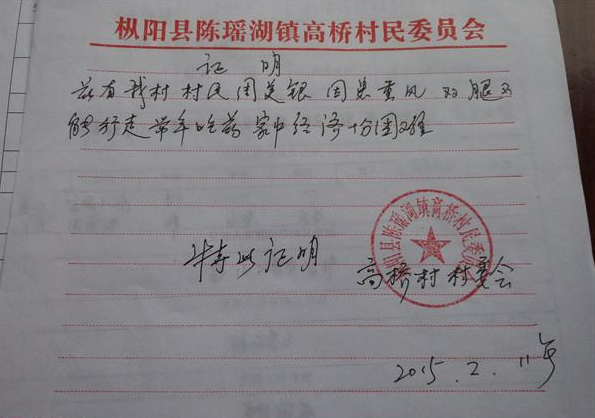 枞阳县陈瑶湖镇高桥村民委员会
证 明
兹有我村 村民周美银 因患重风 双腿不
能行走 常年吃药 家中经济十分困难
枞阳县陈瑶湖镇高桥村民委员会
特此证明
高桥村村委会
2015.2.11号